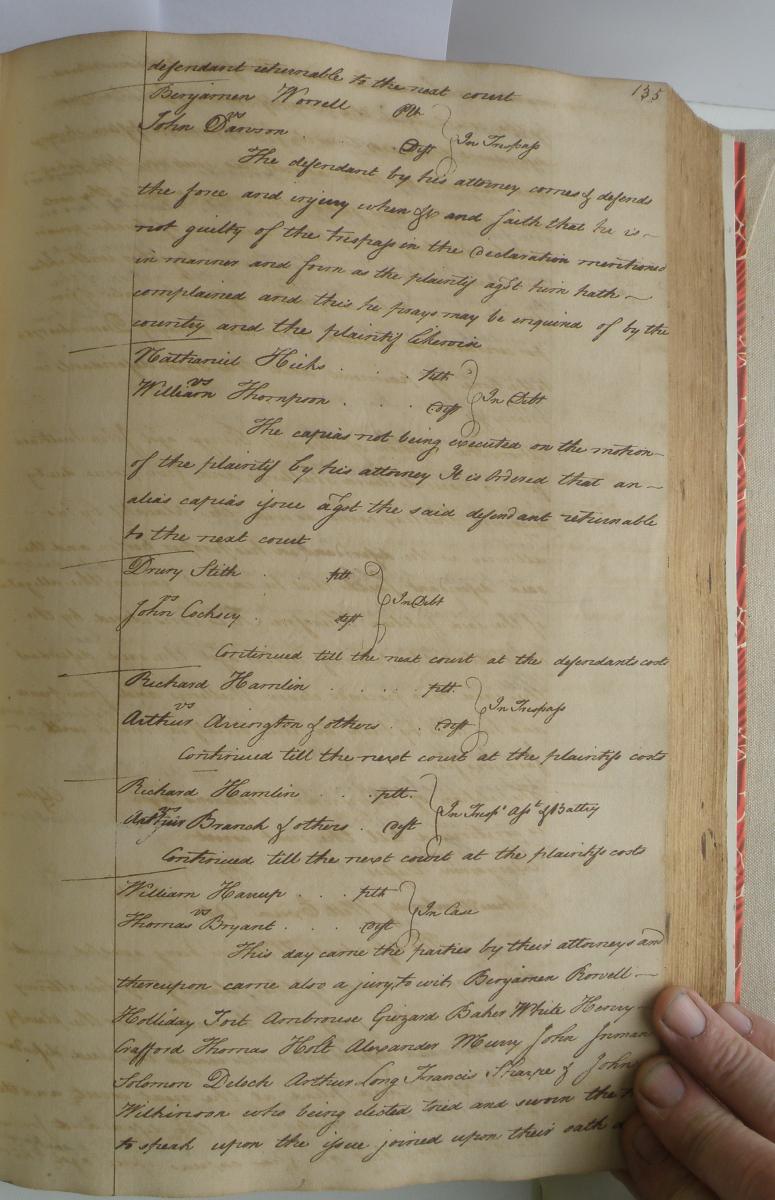 135
defendant returnable to the next court
Benjamen Worrell Plt
vs
John Dawson Deft In Trespass
The defendant by his attorney comes & defends
the force and injury when &c and saith that he is
not guilty of the trespass in the Declaration mentioned
in manner and form as the plaintif agst him hath
complained and this he prays may be enquired of by the
country and the plaintif likewise
Nathaniel Hicks pltt
vs
William Thompson Deft In Debt
The capias not being executed on the motion
of the plaintif by his attorney It is ordered that an
alias capias issue agst the said defendant returnable
to the next court
Drury Stith pltt
vs
John Cocksey deft In Debt
Continued till the next court at the defendants costs
Richard Hamlin pltt
vs
Arthur Arrington & others Deft In Trespass
Continued till the next court at the plaintifs costs
Richard Hamlin pltt
vs
Arthur Branch & others Deft In Tresps Asst & Battery
Continued till the next court at the plaintifs costs
William Harrup pltt
vs
Thomas Bryant Deft In Case
This day came the parties by their attorneys and
thereupon came also a jury to wit, Benjamen Rowell
Holliday Fort Ambrouse Grizard Baker White Henry
Crafford Thomas Holt Alexander Murry John Inman
Solomon Delech Arthur Long Francis Sharpe & John
Wilkinson who being elected tried and sworn the
to speak upon the issue joined upon their oath